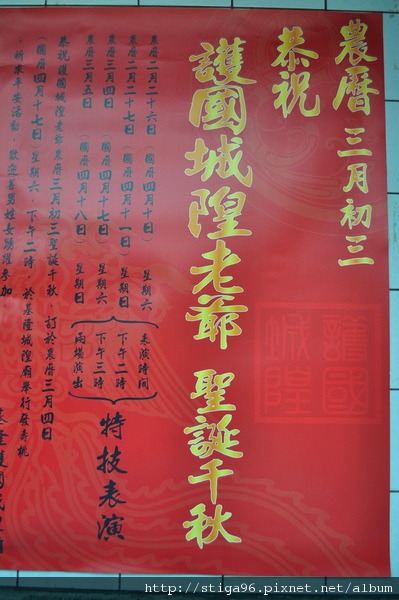 農曆 三月初三
恭祝
護國城隍老爺 聖誕千秋
護國
城隍
農曆二月二十六日(國曆四月十日) 星期六
農曆二月二十七日(國曆四月十一日) 星期日
農曆三月四日(國曆四月十七日) 星期六
農曆三月五日(國曆四月十八日) 星期日
表演時間
下午二時
下午三時
兩場演出
特技表演
恭祝護國城隍老爺農曆三月初三聖誕千秋、訂於農曆三月四日
(國曆四月十七日)星期六、下午二時、於基隆城隍廟舉行發壽桃
祈求平安活動、歡迎善男姓女踴躍參加
基隆護國城隍廟
http://stiga96.pixnet.net/album